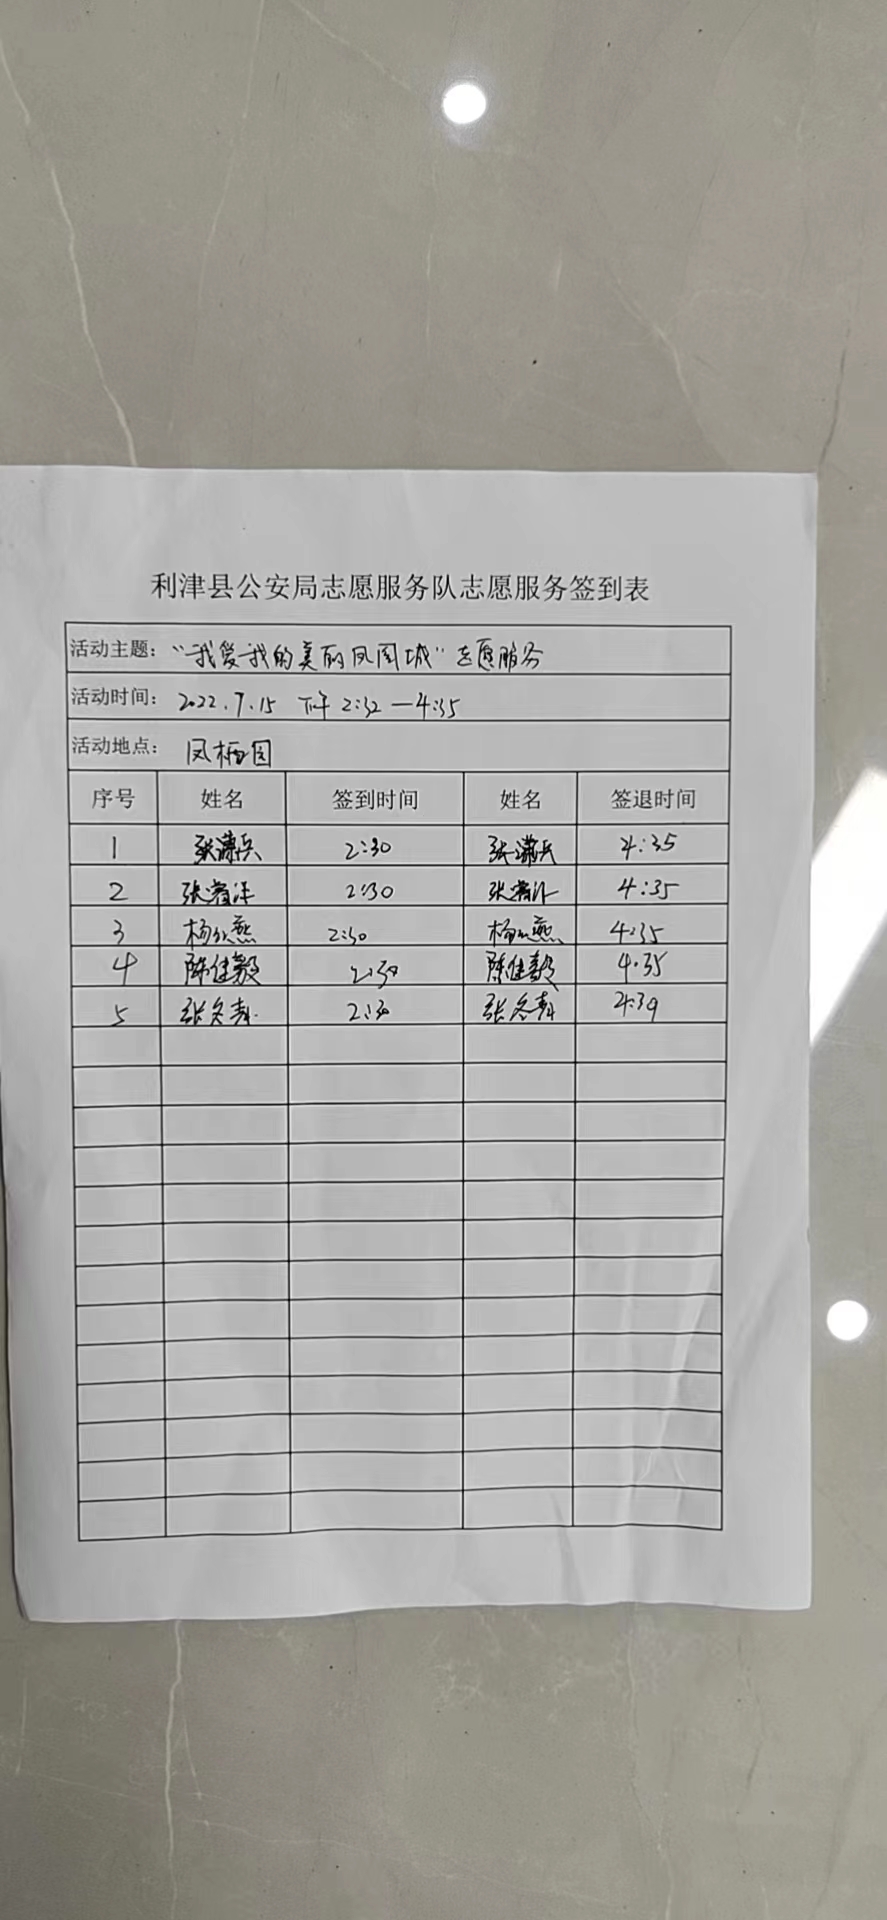 利津县公安局志愿服务队志愿服务签到表
活动主题：“我爱我的美丽凤凰城”志愿服务
活动时间：2022.7.15 下午 2:32—4:35
活动地点：凤栖园
序号 姓名 签到时间 姓名 签退时间
1 张潇兵 2:30 张潇兵 4:35
2 张 2:30 张 4:35
3 杨 燕 2:30 杨 燕 4:35
4 陈健毅 2:30 陈健毅 4:35
5 张冬 2:30 张冬